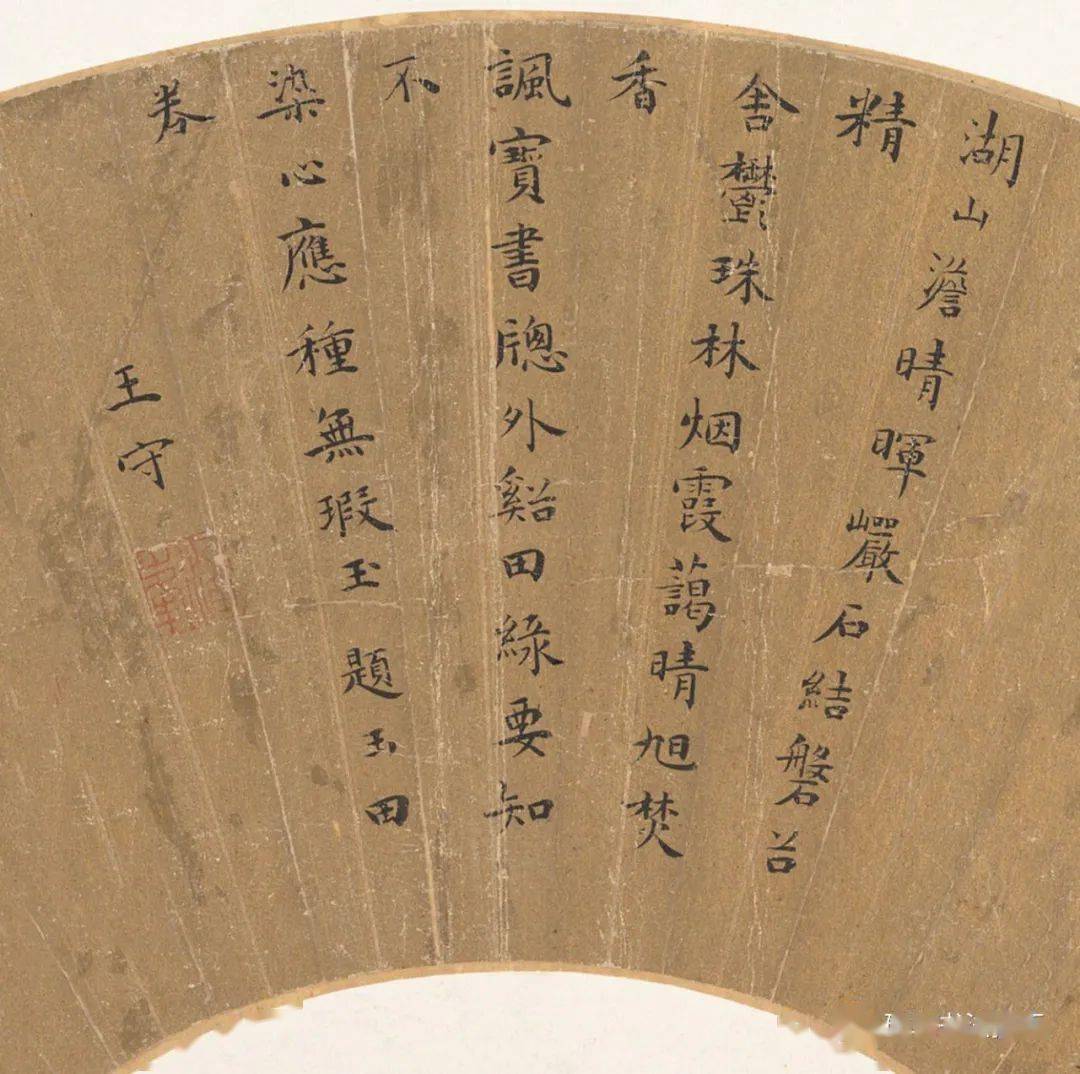 湖山澹晴暉巖石結磐谷
精
舍鬱珠林烟霞藹晴旭焚
香
諷寶書牕外谿田綠要知
不
染心應種無瑕玉題玉田
卷
王守